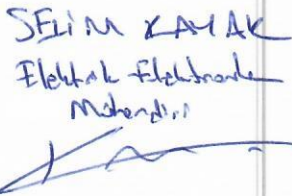 SELİM KAYAK
Elektrik Elektronik
Mühendisi